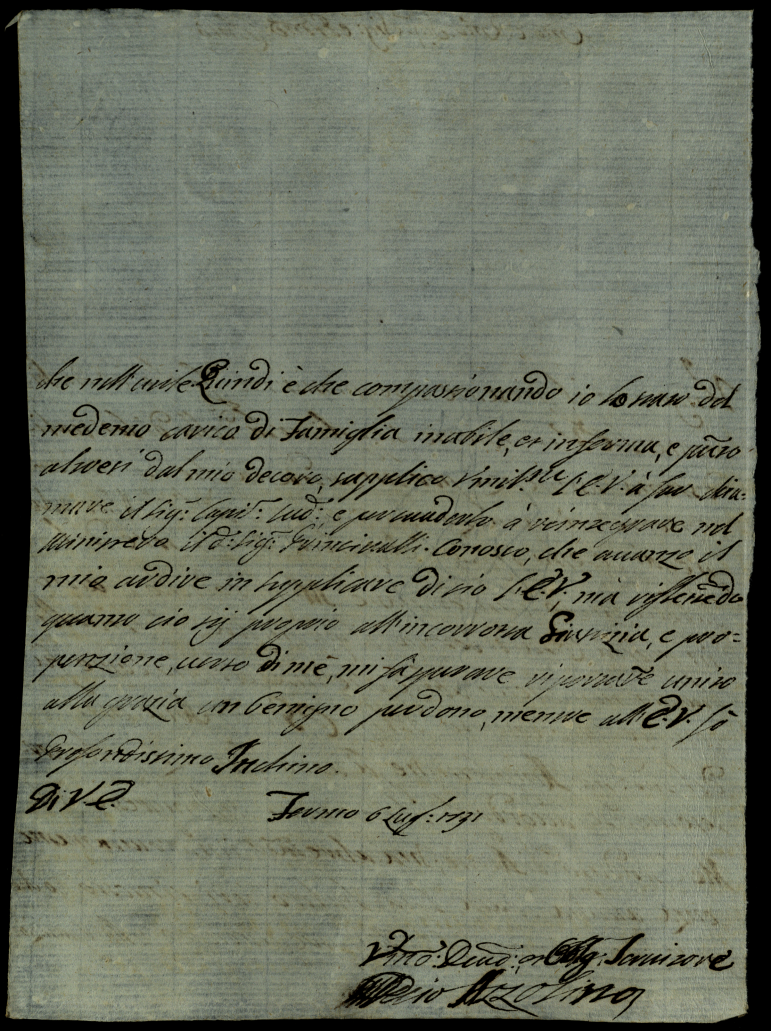 che nell' Quindi è che compassionando io lo stato del
medemo carico di Famiglia inabile, et inferma, e
altresì dal mio decoro, supplico l'E.V. à far chia-
mare il Sig:r Cap:n e persuaderlo à reintegrare nel
Ministero il d:o Sig:r Conosco, che avanzo il
mio ardire in supplicare di ciò l'E.V., mà riflettendo
quanto ciò sij proprio all'incorrotta Giustizia, e pro=
penzione, verso di mè, mi fà sperare riportare unito
alla grazia un benigno perdono, mentre all'E.V. fò
profondissimo Inchino.
Di V.E.
Fermo 6 1791
Dev:o et Obblig: Servitore
Azzolino